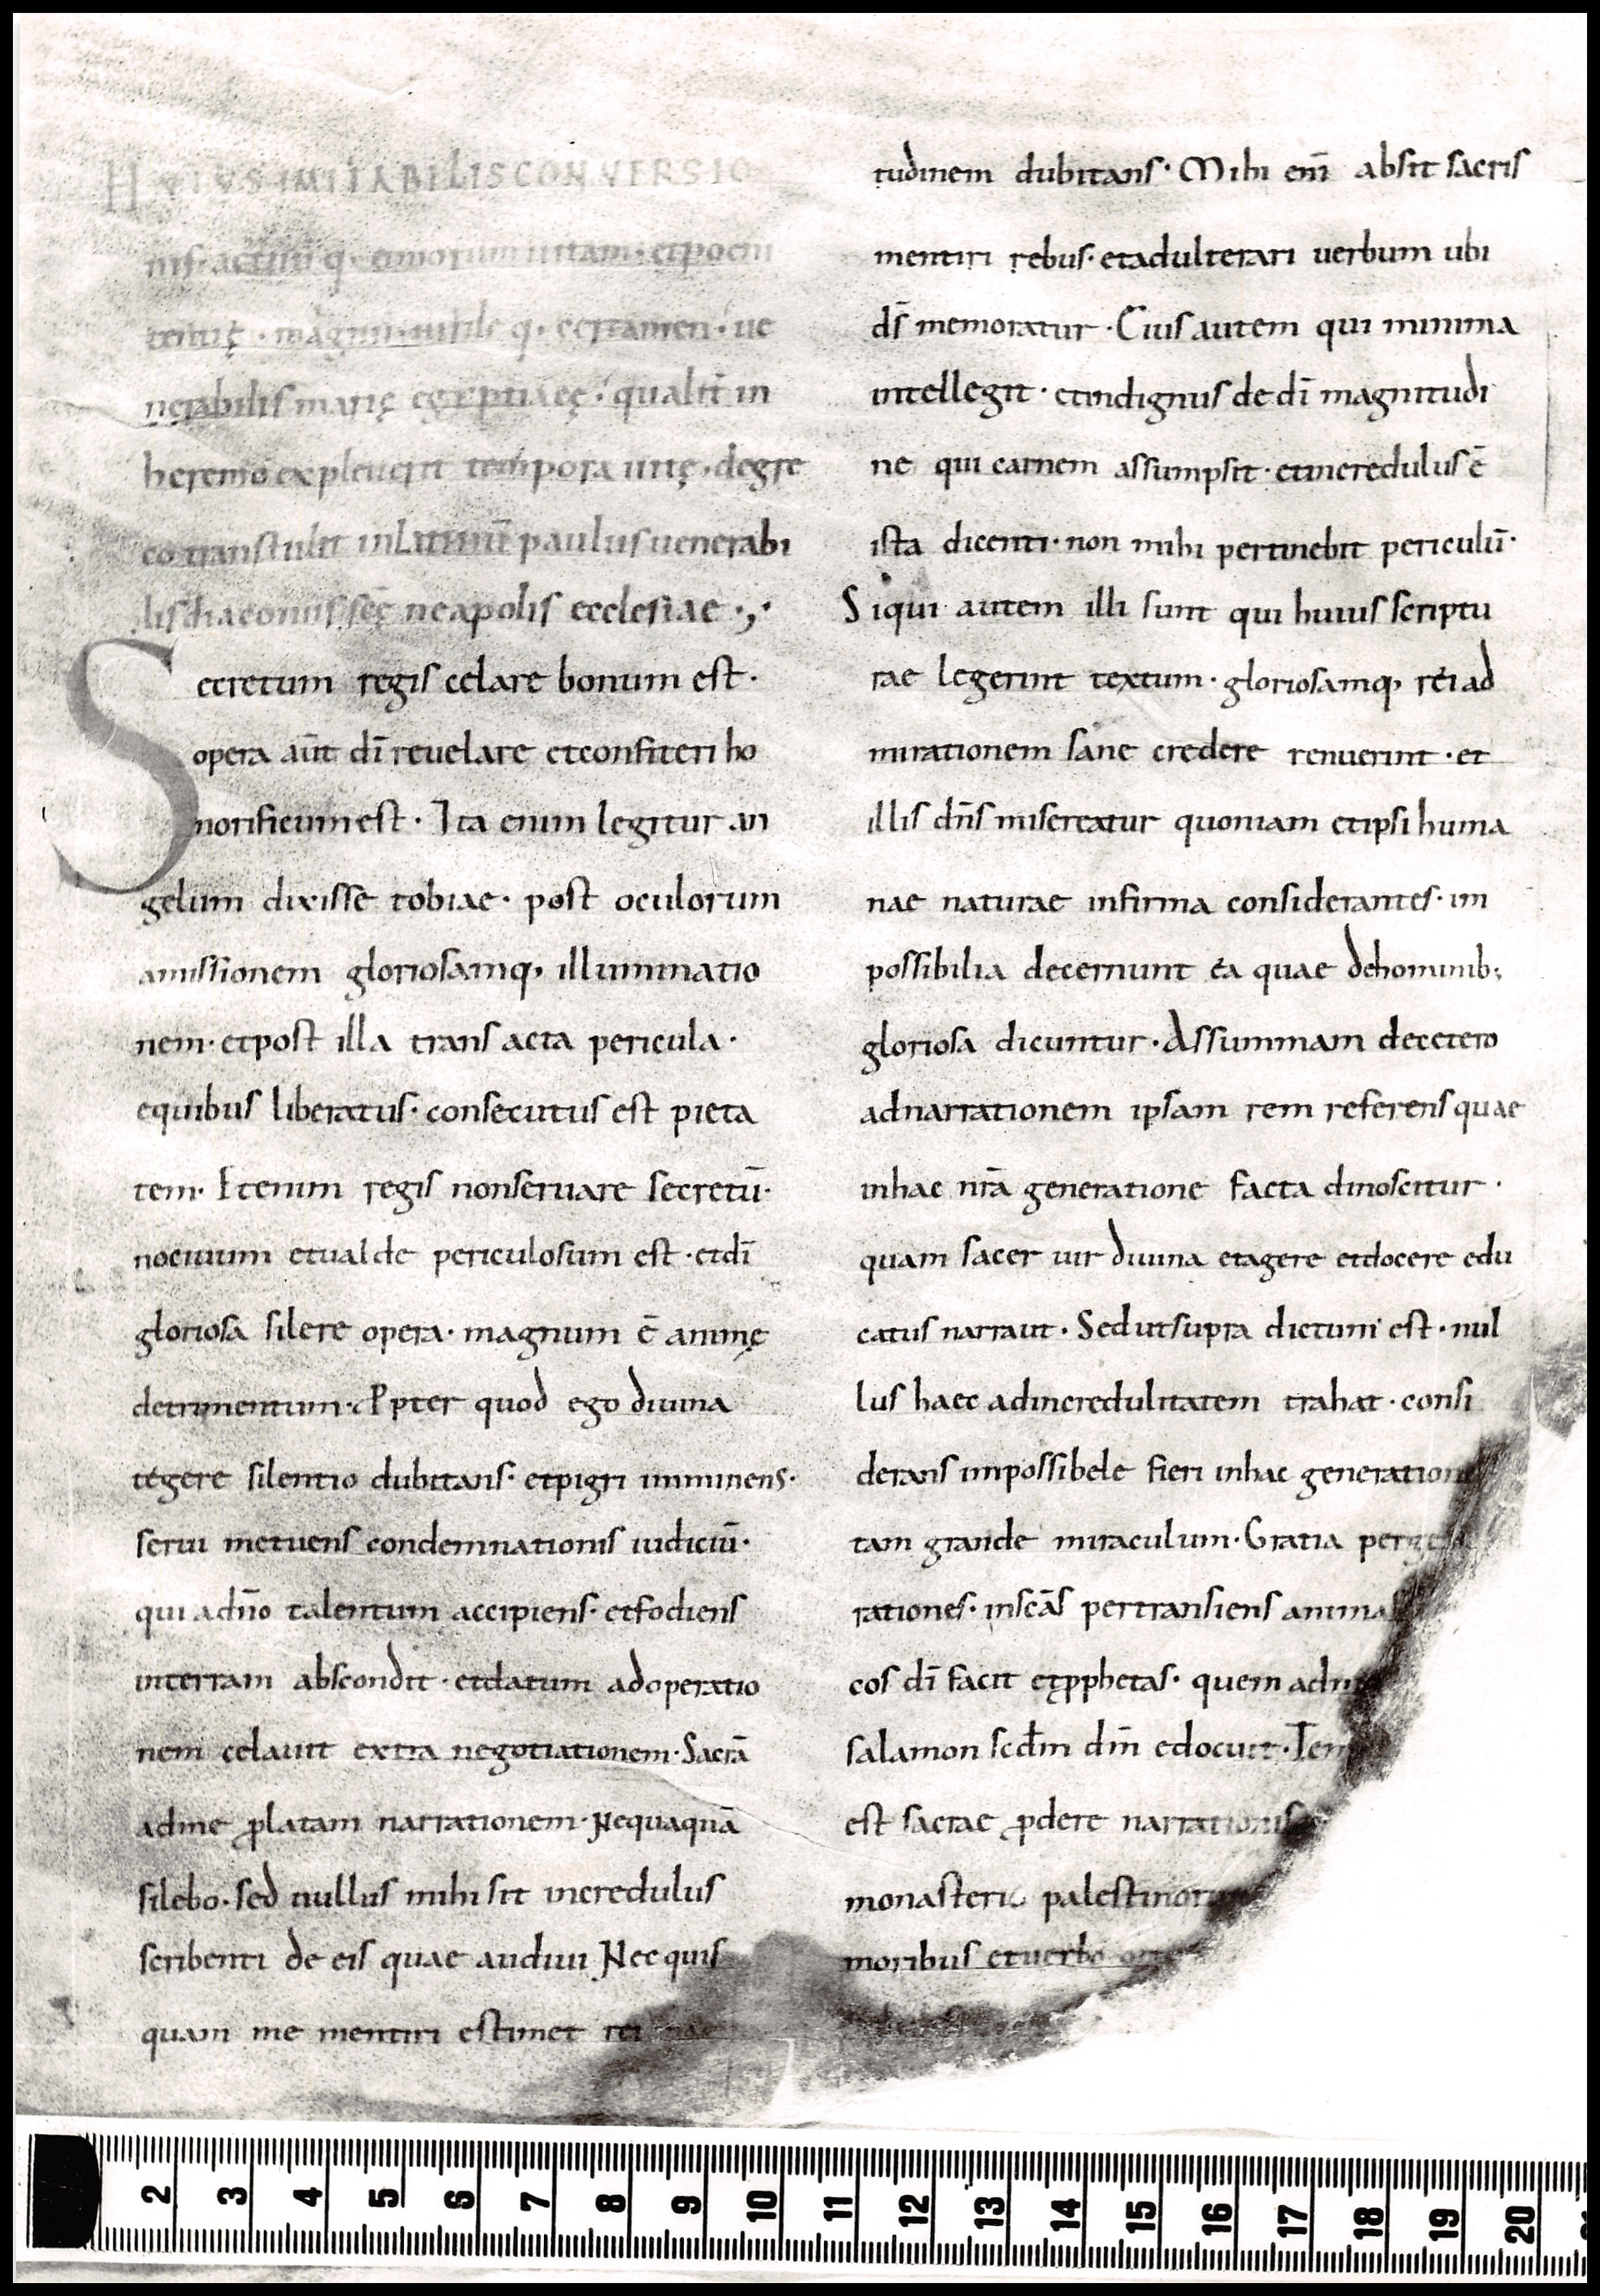 HVIVS IMITABILIS CONVERSIO
nis. actuū q. &morum uitam. &poeni
tentię. magnū. uirile q. certamen. ue
nerabilis marię egyptiacę. qualit̄ in
heremo expleuerit tempora uitę. degre
co transtulit inlatinū paulus uenerabi
lis diaconus sc̄ę neapolis ecclesiae.,.
Secretum regis celare bonum est.
opera aūt dī reuelare etconfiteri ho
norificum est. Ita enim legitur an
gelum dixisse tobiae. post oculorum
amissionem gloriosamq, illuminatio
nem. etpost illa transacta pericula.
equibus liberatus. consecutus est pieta
tem. Etenim regis nonseruare secretū.
nociuum etualde periculosum est. etdī
gloriosa silere opera. magnum ē animę
detrimentum. Ppter quod ego diuina
tegere silentio dubitans. etpigri imminens.
serui metuens condemnationis iudiciū.
qui adn̄o talentum accipiens. etfodiens
interram abscondit. etdatum adoperatio
nem celauit extra negotiationem. Sacrā
adme ꝓlatam narrationem. Nequaquā
silebo. sed nullus mihi sit incredulus
scribenti de eis quae audiui Nec quis
quam me mentiri estimet rei
tudinem dubitans. Mihi enī absit sacris
mentiri rebus. etadulterari uerbum ubi
ds̄ memoratur. Cius autem qui minima
intellegit. etindignus de dī magnitudi
ne qui carnem assumpsit. etincredulus ē
ista dicenti. non mihi pertinebit periculū.
Siqui autem illi sunt qui huius scriptu
rae legerint textum. gloriosamq, rei ad
mirationem sane credere renuerint. et
illis dn̄s misereatur quoniam etipsi huma
nae naturae infirma considerantes. im
possibilia decernunt ea quae dehominib;
gloriosa dicuntur. Assummam decetero
adnarrationem ipsam rem referens quae
inhac nr̄a generatione facta dinoscitur.
quam sacer uir diuina etagere etdocere edu
catus narrauit. Sed utsupra dictum est. nul
lus haec adincredulitatem trahat. consi
derans impossibele fieri inhac generatione
tam grande miraculum. Gratia perge
rationes. inscās pertransiens animas
cos dī facit etꝓphetas. quem adm
salamon scdm dm̄ edocuit. Tem
est sacrae ꝓdere narrationis
monasterio palestinorum
moribus etuerbo